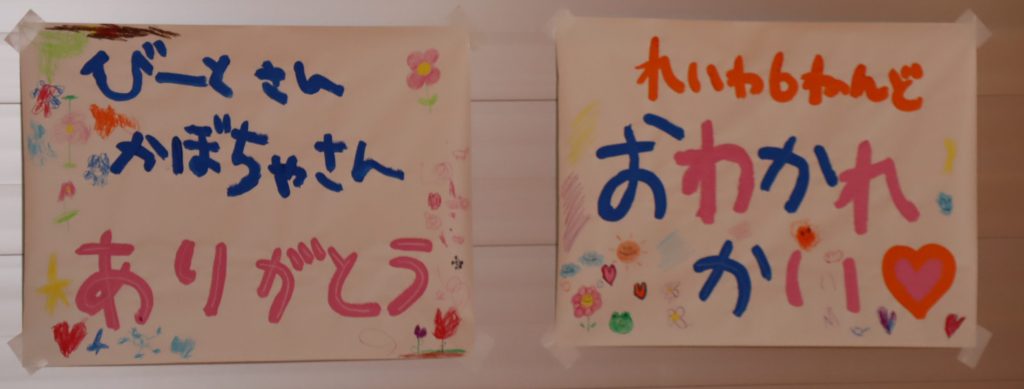 びーとさん
かぼちゃさん
ありがとう
れいわ6ねんど
おわかれ
かい